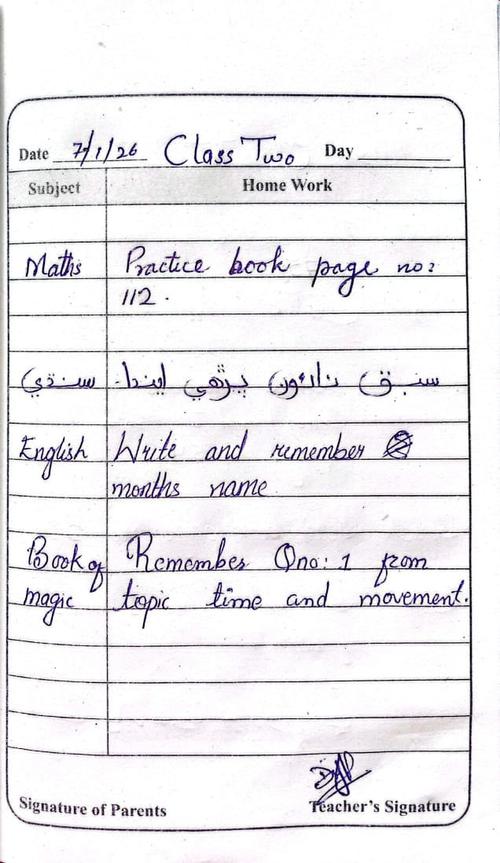 Date 7/1/26 Class Two Day
Subject Home Work
Maths Practice book page no:
112.
سنڌي سبق نائون پڙهي ايندا.
English Write and remember
months name
Book of Remember Qno: 1 from
magic topic time and movement.
Signature of Parents Teacher's Signature